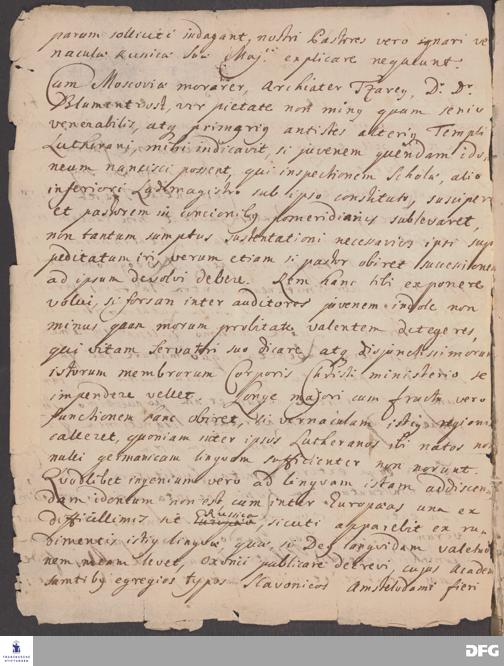 parum solliciti indagant, nostri Pastores vero ignari ver
naculæ Russicæ suæ Maj.ti explicare nequeunt.
Cum Moscoviæ morarer, Archiater Tzareg, D.r D.r
Blumentrost, vir pietate non minq quam senio
venerabilis, atq primariq antistes alteriq Templi
Lutherani, mihi indicavit si juvenem quendam ido,
neum nancisci possent, qui inspectionem Scholæ, alio
inferiori Ludimagistro sub ipso constituto, susciper
et pastorem in concionibq pomeridianis sublevaret,
non tantum sumptus sustentationi necessarios ipsi sup
peditatum iri, verum etiam si pastor obiret successionem
ad ipsum devolvi debere. Rem hanc tibi exponere
volui, si forsan inter auditores juvenem indole non
minus quam morum probitate valentem detegeres,
qui vitam Servatori suo dicare, atq disjunctissimorum
istorum membrorum Corporis Christi ministerio se
impendere vellet. Longe majori cum fructu vero
functionem hanc obiret, si vernaculam istiq regionis
calleret, quoniam inter ipsos Lutheranos ibi natos no,
nulli germanicam linguam sufficienter non norunt.
Quodlibet ingenium vero ad linguam istam addiscen,
dam idoneum non est cum inter Europæas una ex
difficillimis sit Russica, sicuti apparebit ex ru,
dimentis istiq linguæ, quæ si Deq languidam valetudi
nem meam levet, Oxonii publicare decrevi, cujus Acade
santibq egregios typos Slavonicos Amstelodami fieri
FRANCKESCHE STIFTUNGEN
DFG